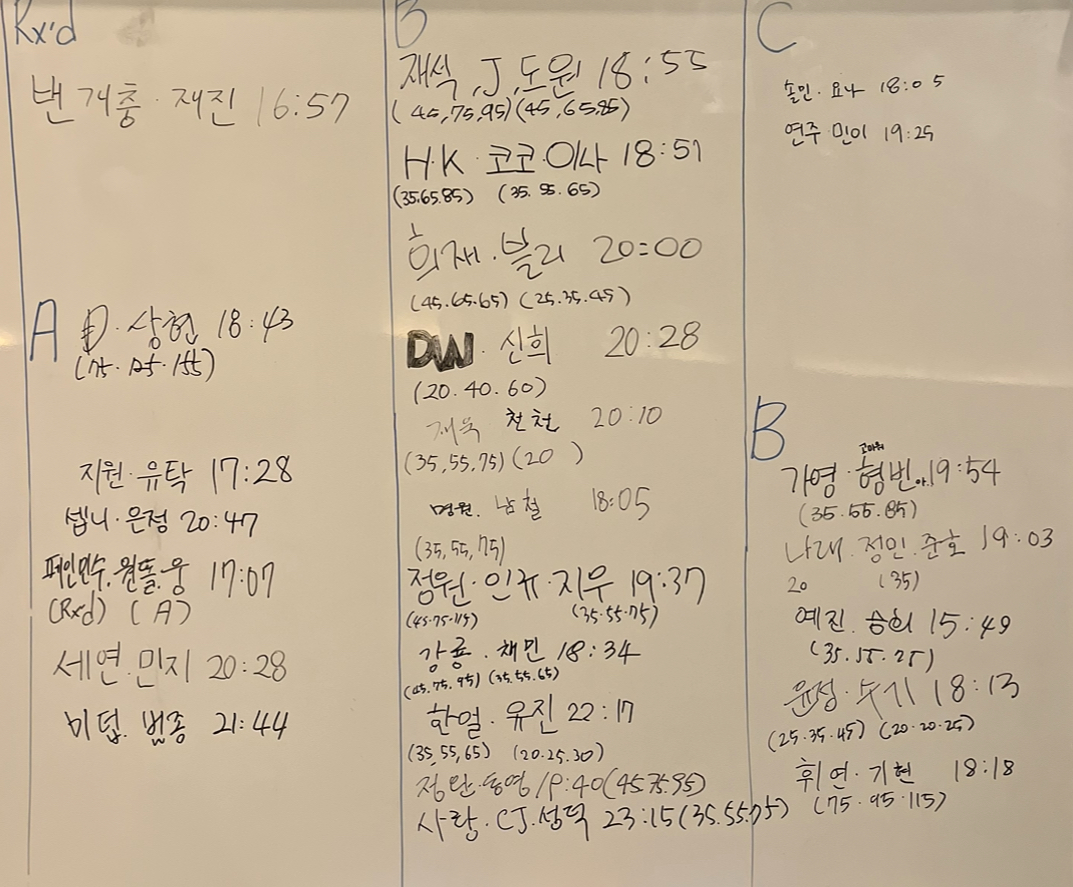 Rx'd
밴 개충 · 재진 16:57
A D · 상현 18:43
(75 · 125 · 155)
지원 · 유탁 17:28
셉니 · 은정 20:47
페인민수, 원돌, 웅 17:07
(Rxd) (A)
세연 · 민지 20:28
미덥 · 범종 21:44
B
재석, J, 도원 18:55
(45,75,95) (45,65,85)
H·K · 코코 · 이나 18:51
(35.65.85) (35.55.65)
희재 · 블리 20:00
(45.65.65) (25.35.45)
DW · 신희 20:28
(20.40.60)
재욱 천천 20:10
(35,55,75) (20 )
명원 · 남철 18:05
(35,55,75)
정원 · 인규 · 지우 19:37
(45·75·115) (35·55·75)
강룡 · 채민 18:34
(45.75.95) (35.55.65)
한얼 · 유진 22:17
(35,55,65) (20.25.30)
정민 · 동영 19:40 (45.75.95)
사랑 · CJ · 성덕 23:15 (35.55.75)
C
솔민 · 요나 18:05
연주 · 민이 19:25
B
고마워
가영 · 형빈아. 19:54
(35.55.85)
나래 · 정인 · 준호 19:03
20 (35)
예진 · 승희 15:49
(35.15.25)
윤성 · 수기 18:13
(25.35.45) (20.20.25)
휘연 · 기현 18:18
(75 · 95 · 115)